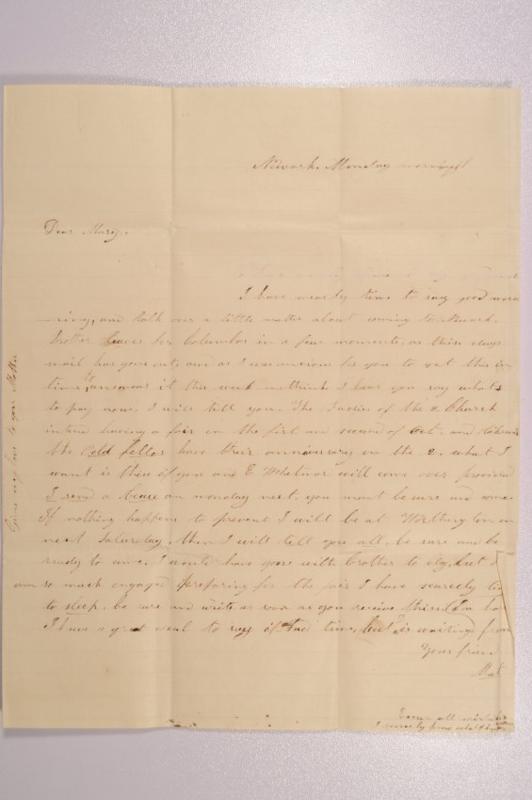 Newark, Monday morning
Dear Mary,
I have nearly time to say good morn
-ing, and talk over a little matter about coming to Newark.
Brother leaves for Columbus in a few moments, as this days
mail has gone out, and as I was anxious for you to get this in
time to answer it this week methinks I hear you say whats
to pay now, I will tell you. The Ladies of the 2 Church
intend having a fair on the first and second of Oct. and
the Odd Fellos have their anniversary on the 2. what I
want is this if you and E Whatmor will come over provided
I send a on monday next. you must be sure and come.
If nothing happens to prevent I will be at Worthington on
next Saturday, then I will tell you all, be sure and be
ready to come. I would have gone with brother to day, but I
am so much engaged preparing for the fair I have scarcely
to sleep. be sure and write as soon as you receive this
I have a great deal to say if I had time, but is waiting from
Your friend
Mat
Excuse all mistakes
I scarcely know what
Give my love to your Mother